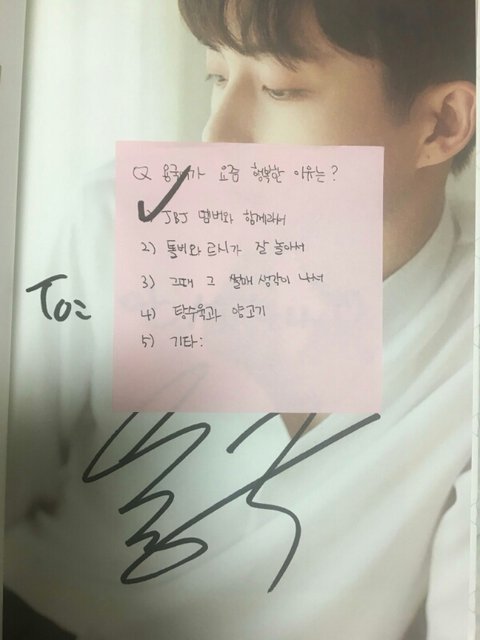 Q 용국이가 요즘 행복한 이유는?
JBJ 멤버와 함께라서
2) 톨비와 르시가 잘 놀아서
3) 그때 그 썰매 생각이 나서
4) 탕수육과 양고기
5) 기타:
To:
용국